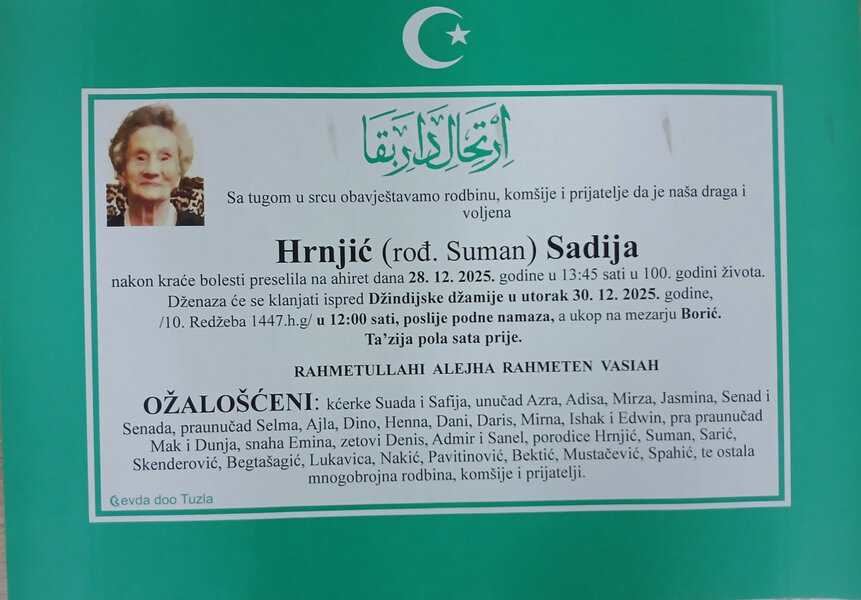 اِرْتِحَالِ دَارِ بَقَا
Sa tugom u srcu obavještavamo rodbinu, komšije i prijatelje da je naša draga i
voljena
Hrnjić (rođ. Suman) Sadija
nakon kraće bolesti preselila na ahiret dana 28. 12. 2025. godine u 13:45 sati u 100. godini života.
Dženaza će se klanjati ispred Džindijske džamije u utorak 30. 12. 2025. godine,
/10. Redžeba 1447.h.g/ u 12:00 sati, poslije podne namaza, a ukop na mezarju Borić.
Ta'zija pola sata prije.
RAHMETULLAHI ALEJHA RAHMETEN VASIAH
OŽALOŠĆENI: kćerke Suada i Safija, unučad Azra, Adisa, Mirza, Jasmina, Senad i
Senada, praunučad Selma, Ajla, Dino, Henna, Dani, Daris, Mirna, Ishak i Edwin, pra praunučad
Mak i Dunja, snaha Emina, zetovi Denis, Admir i Sanel, porodice Hrnjić, Suman, Sarić,
Skenderović, Begtašagić, Lukavica, Nakić, Pavitinović, Bektić, Mustačević, Spahić, te ostala
mnogobrojna rodbina, komšije i prijatelji.
Revda doo Tuzla